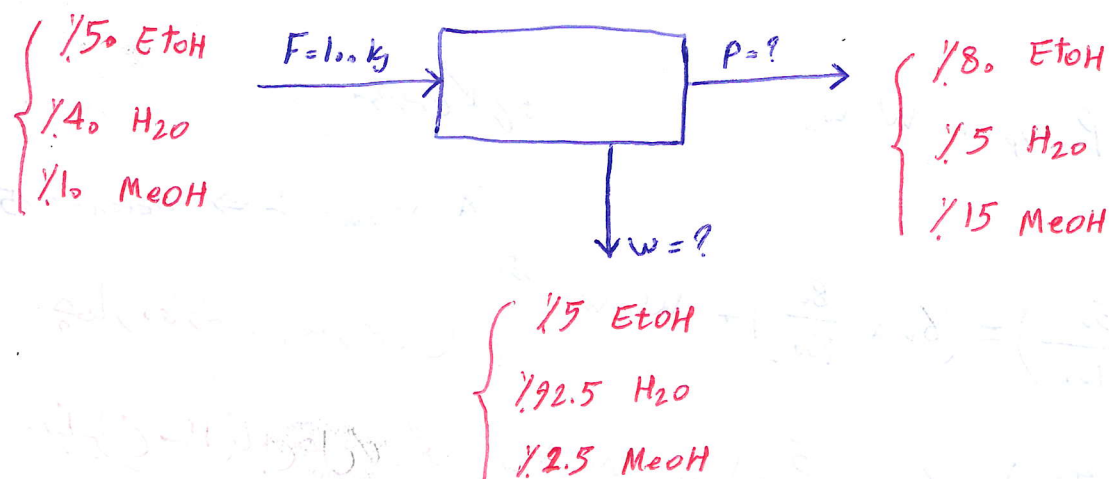 %50 EtOH
%40 H2O
%10 MeOH
F=100 kg
P=?
%80 EtOH
%5 H2O
%15 MeOH
W=?
%5 EtOH
%92.5 H2O
%2.5 MeOH